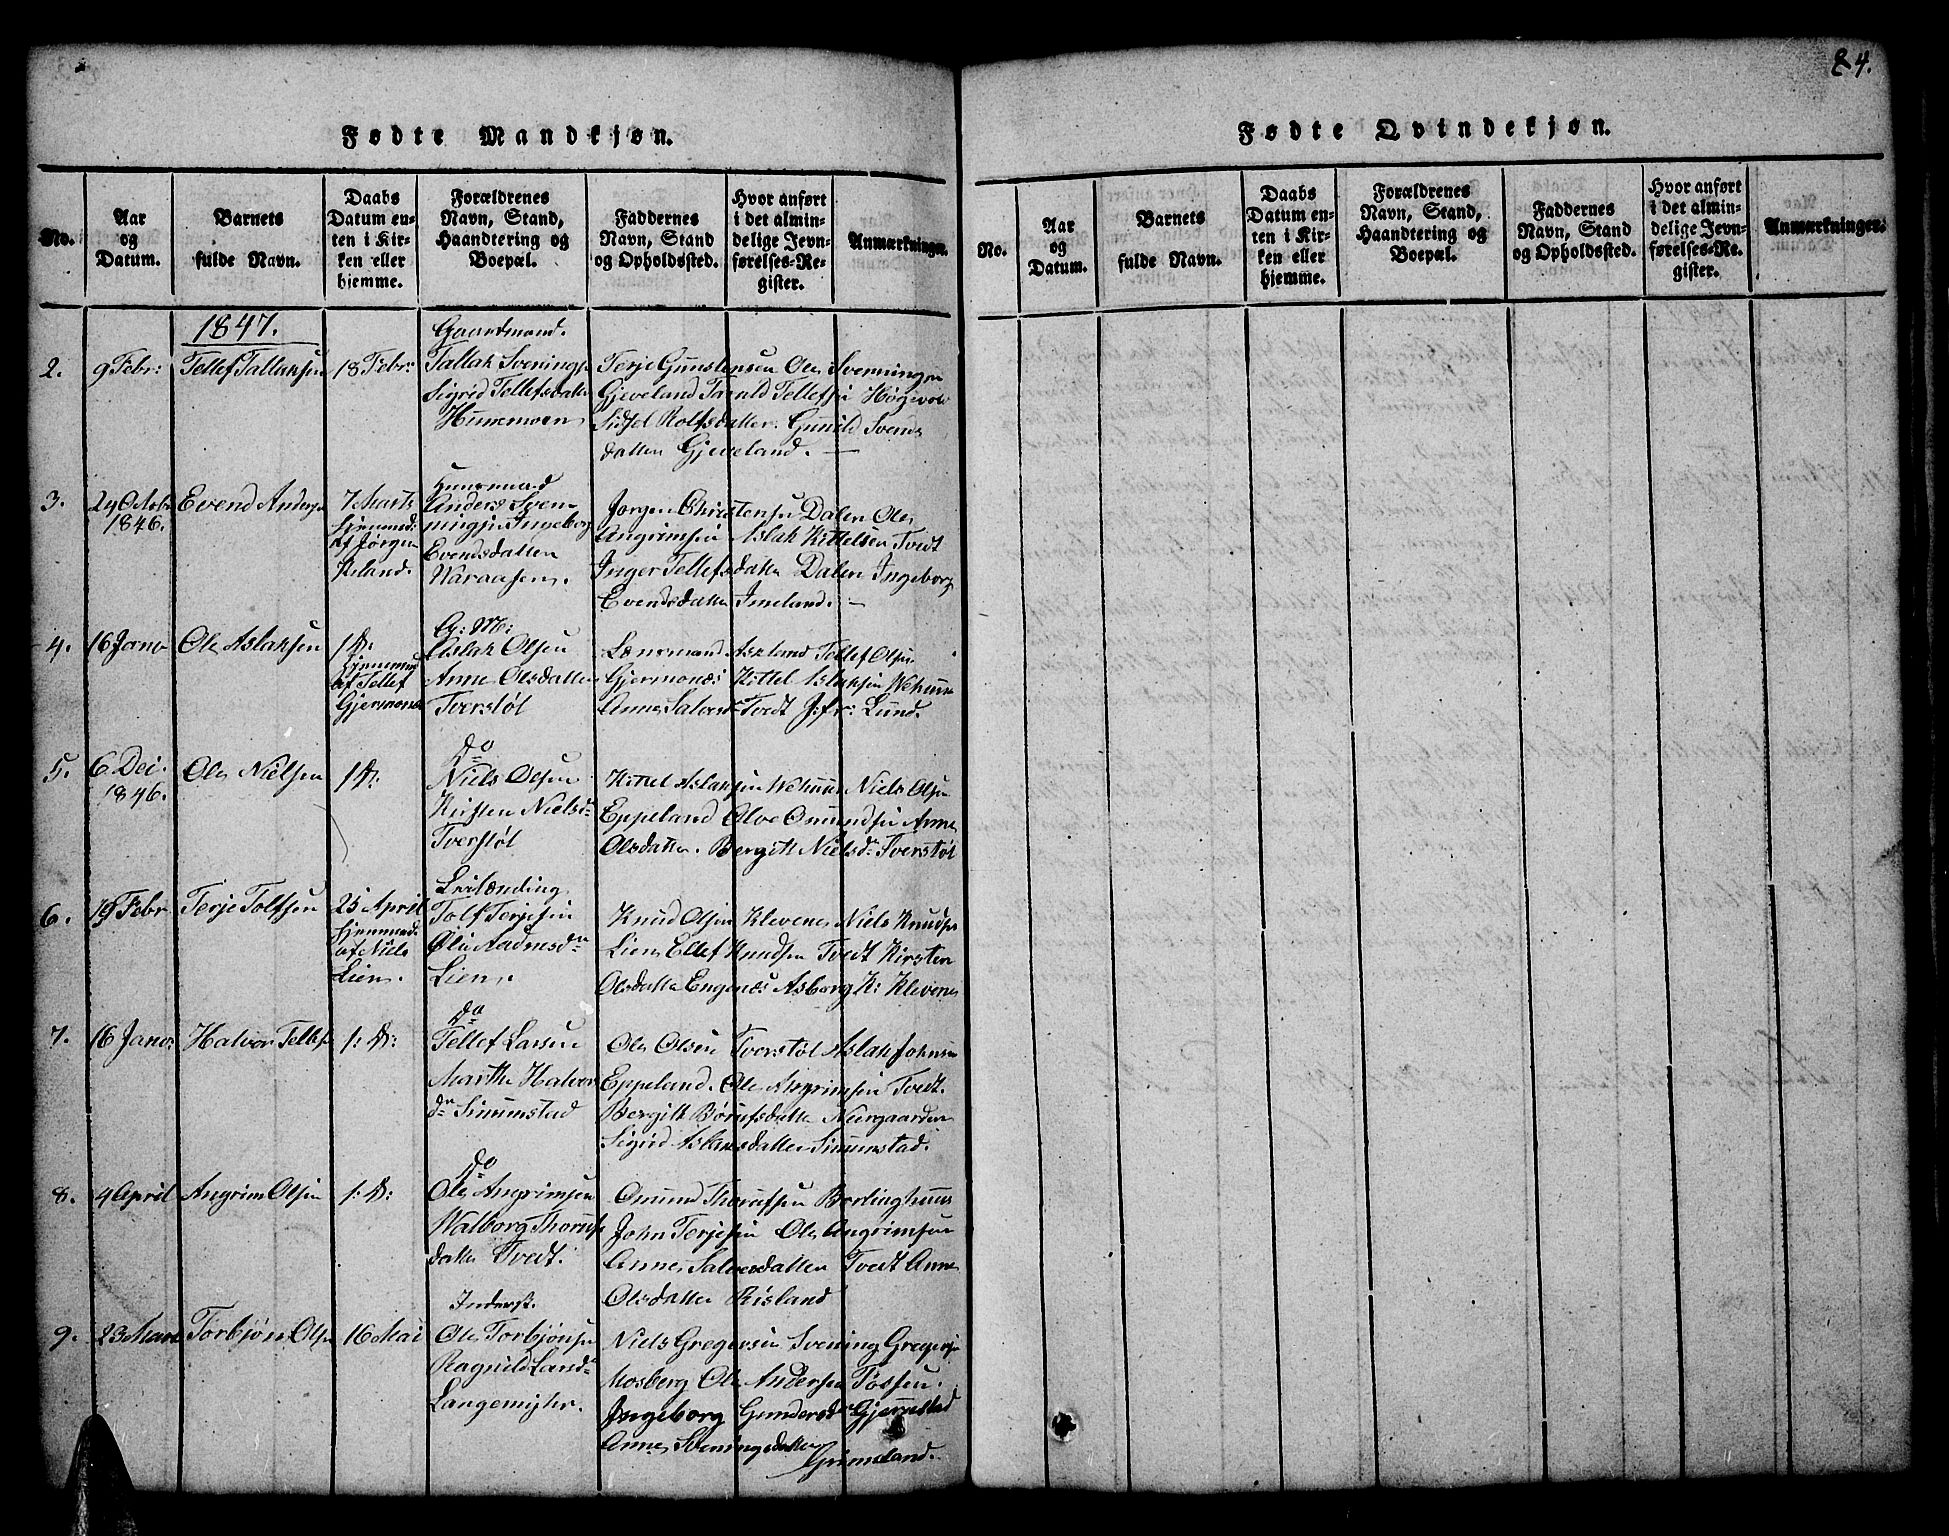 84.
Fødte Mandkjøn.
No.
Aar
og
Datum.
Barnets
fulde Navn.
Daabs
Datum en-
ten i Kir-
ken eller
hjemme.
Forældrenes
Navn, Stand,
Haandtering og
Boepæl.
Faddernes
Navn, Stand
og Opholdssted.
Hvor anført
i det almin-
delige Jevn-
førelses-Re-
gister.
Anmærkninger.
1847.
2.
9 Febr:
Tellef Tallaksen
18 Febr:
Gaardmand.
Tallak Svenings.
Sigrid Tellefsdatter
Terje Gunstensen Ole Svenningen
Gjeveland Tarald Tellefsen
Sidsel Rolfsdatter. Gunild Svends
datter Gjeveland. —
3.
24 Octobr
1846.
Evend Anders.
7 Marts
Hjemmed:
af Jørgen
Huusmand
Anders Sven-
ningsen Ingeborg
Evendsdatter
Jørgen Christensen Dalen Ole
Angrimsen Aslak Kittelsen Tvedt
Inger Tellefsdatter Dalen Ingeborg
Evendsdatter Imeland. —
4.
16 Janr
Ole Aslaksen
1 D:
Hjemmed
af Tellef
Gjermones
G: M:
Aslak Olsen
Anne Olsdatter
Tverstøl
Lænsmand Askland Tellef Olsen
Gjermones Kittel Aslaksen Wehuus
Anne Salvesdr Tvedt J:fr: Lund.
5.
6 Dec.
1846.
Ole Nielsen
1 D:
Do
Niels Olsen
Kirsten Nielsdr
Tverstøl
Kittel Aslaksen Wehuus Niels Olsen
Eppeland Olve Omundsen Anne
Olsdatter. Bergitte Nielsdr Tverstøl
6.
19 Febr
Terje Tolfsen
25 April
Hjemmed.
af Niels
Lien.
Leilænding
Tolf Terjesen
Lien.
Knud Olsen Klevene Niels Knudsen
Lien Ellef Knudsen Tvedt Kirsten
Olsdatter Engenæs Asborg K: Klevene
7.
16 Janr:
Halvor Tellefs
1: D:
Do
Tellef Larsen
Marthe Halvor
dr Simmstad
Ole Olsen Tverstøl Aslak Johnsen
Eppeland. Ole Angrimsen Tvedt.
Bergitte Børufsdatter Nærgaarden
Sigrid Aslaksdatter Simmstad.
8.
4 April
Angrim Olsen
1: D:
Do
Ole Angrimsen
Walborg Thorufs
datter Tvedt.
Omund Thorufsen Borlinghuus
John Terjesen Ole Angrimsen
Anne Salvesdatter Tvedt Anne
Olsdatter Risland
9.
23 Marts
Torbjørn Olsen
16 Mai
Inderst.
Ole Torbjørnsen
Ragnild
Niels Gregersen Svening Gregersen
Mosberg Ole Andersen Fossen.
Ingeborg Gundersdr Gjernestad
Anne Sveningsdatter
Grimeland.
Fødte Qvindekjøn.
No.
Aar
og
Datum.
Barnets
fulde Navn.
Daabs
Datum en-
ten i Kir-
ken eller
hjemme.
Forældrenes
Navn, Stand,
Haandtering og
Boepæl.
Faddernes
Navn, Stand
og Opholdssted.
Hvor anført
i det almin-
delige Jevn-
førelses-Re-
gister.
Anmærkninger.